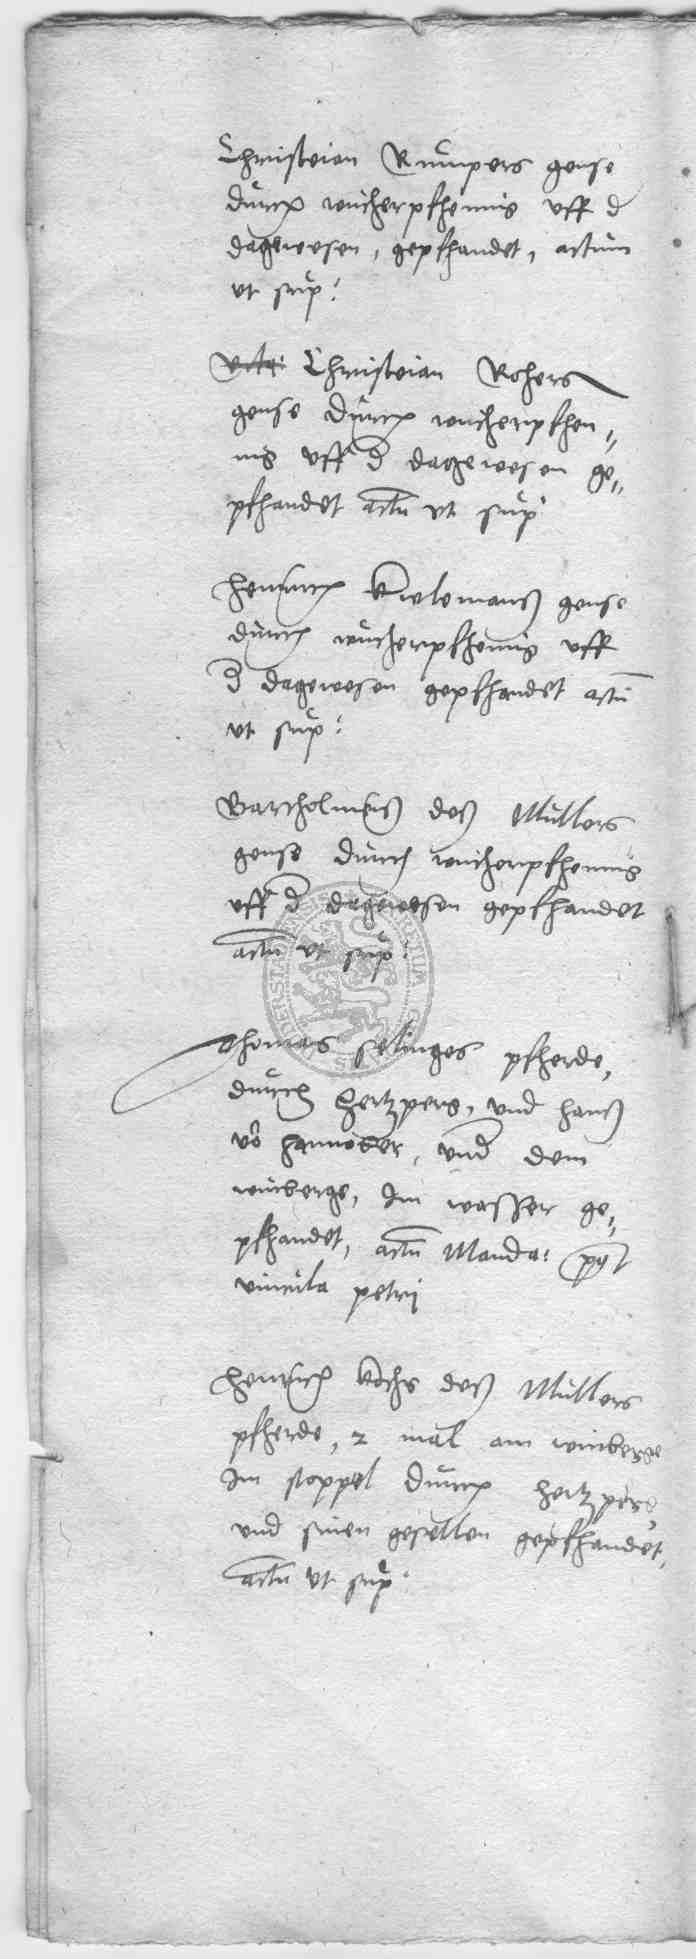 Christoian Rumpers gense
durch wucherpfhennig uff d
dagewesen, gepfhandet, actum
ut sup:
Christoian Rohers
gense durch wucherpfhen„
nig uff d dagewesen ge„
pfhandet actu ut sup
Henrich Kwlemanß gense
durch wucherpfhennig uff
d dagewesen gepfhandet actu
ut sup:
Bartholmeuß deß Mullers
gense durch wucherpfhennig
uff d dagewesen gepfhandet
actu ut sup:
Thomas selinges pfherde,
durch Hertzperg, und Hanß
vo Hannober, und dem
winberge, Im wasser ge„
pfhandet, actu Manda: post
vincula petrij
Henrich Kochs deß Mullers
pfherde, 2 mal am winberge
Im stoppel durch Hertzperg
und sinen gesellen gepfhandet,
actu ut sup: